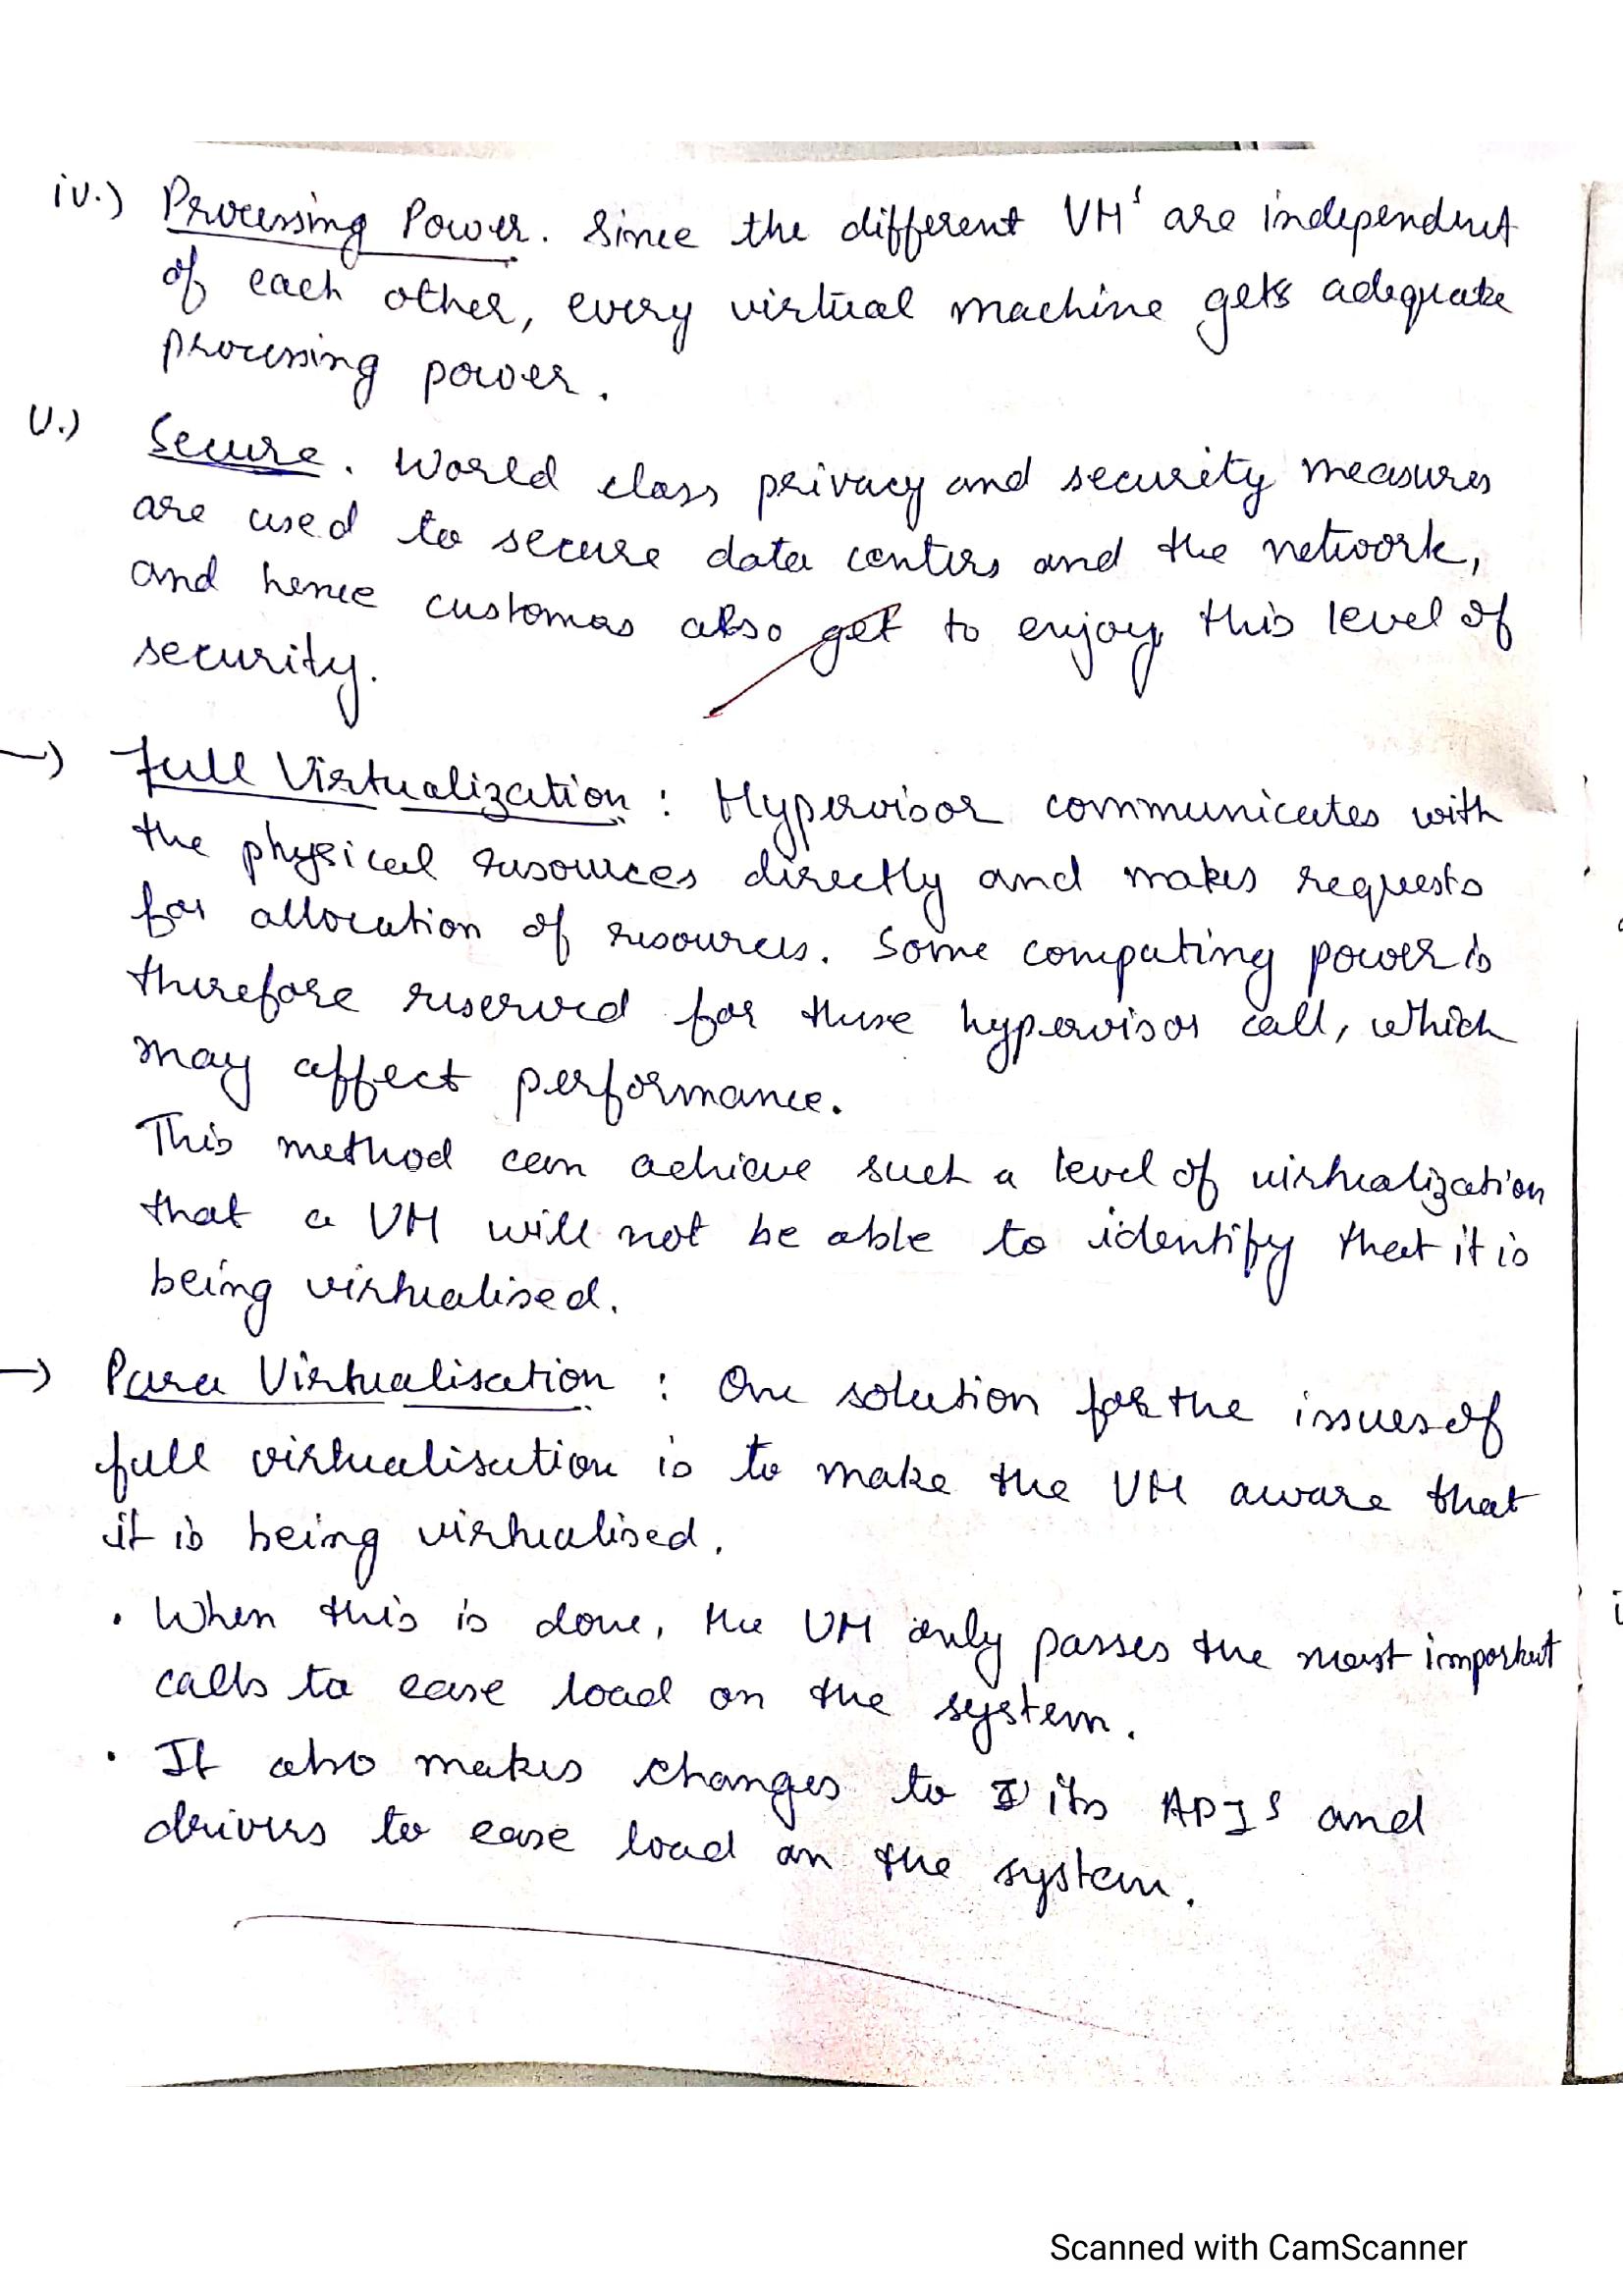 iv.) Processing Power. Since the different VM's are independent
of each other, every virtual machine gets adequate
processing power.
v.) Secure. World class privacy and security measures
are used to secure data centers and the network,
and hence customers also get to enjoy this level of
security.
→ Full Virtualization : Hypervisor communicates with
the physical resources directly and makes requests
for allocation of resources. Some computing power is
therefore reserved for these hypervisor call, which
may affect performance.
This method can achieve such a level of virtualization
that a VM will not be able to identify that it is
being virtualised.
→ Para Virtualisation : One solution for the issues of
full virtualisation is to make the VM aware that
it is being virtualised.
• When this is done, the VM only passes the most important
calls to ease load on the system.
• It also makes changes to its APIs and
drivers to ease load on the system.
Scanned with CamScanner